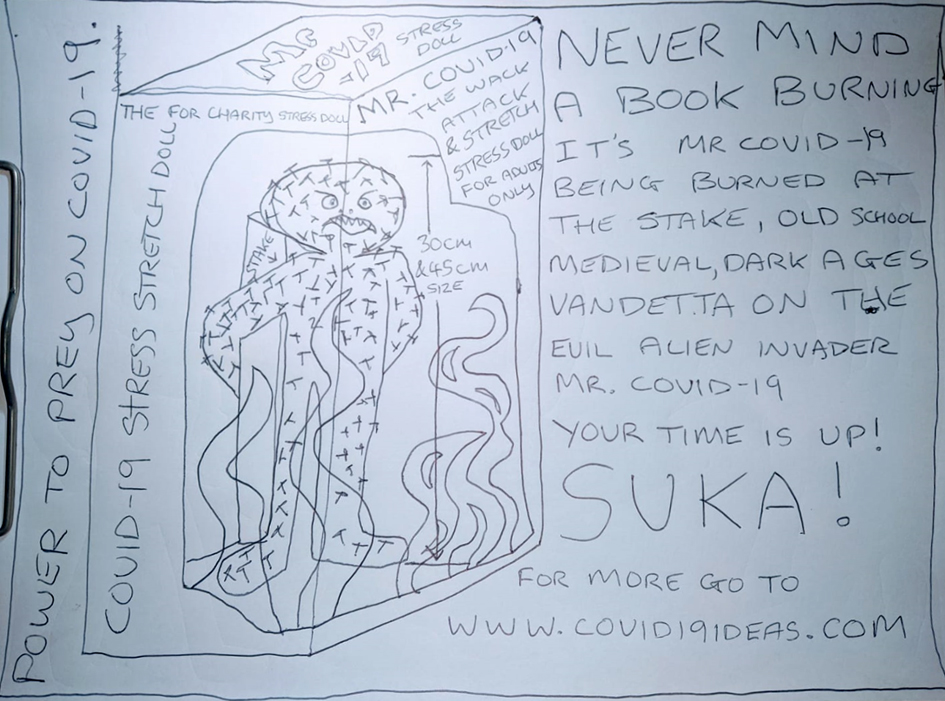 POWER TO PREY ON COVID-19.
COVID-19 STRESS STRETCH DOLL
MR
COVID
-19
STRESS
DOLL
THE FOR CHARITY STRESS DOLL
MR. COVID-19
THE WACK
ATTACK
& STRETCH
STRESS DOLL
FOR ADULTS
ONLY
STAKE
30cm
& 45cm
SIZE
NEVER MIND
A BOOK BURNING
IT'S MR COVID-19
BEING BURNED AT
THE STAKE, OLD SCHOOL
MEDIEVAL, DARK AGES
VANDETTA ON THE
EVIL ALIEN INVADER
MR. COVID-19
YOUR TIME IS UP!
SUKA!
FOR MORE GO TO
WWW.COVID19IDEAS.COM